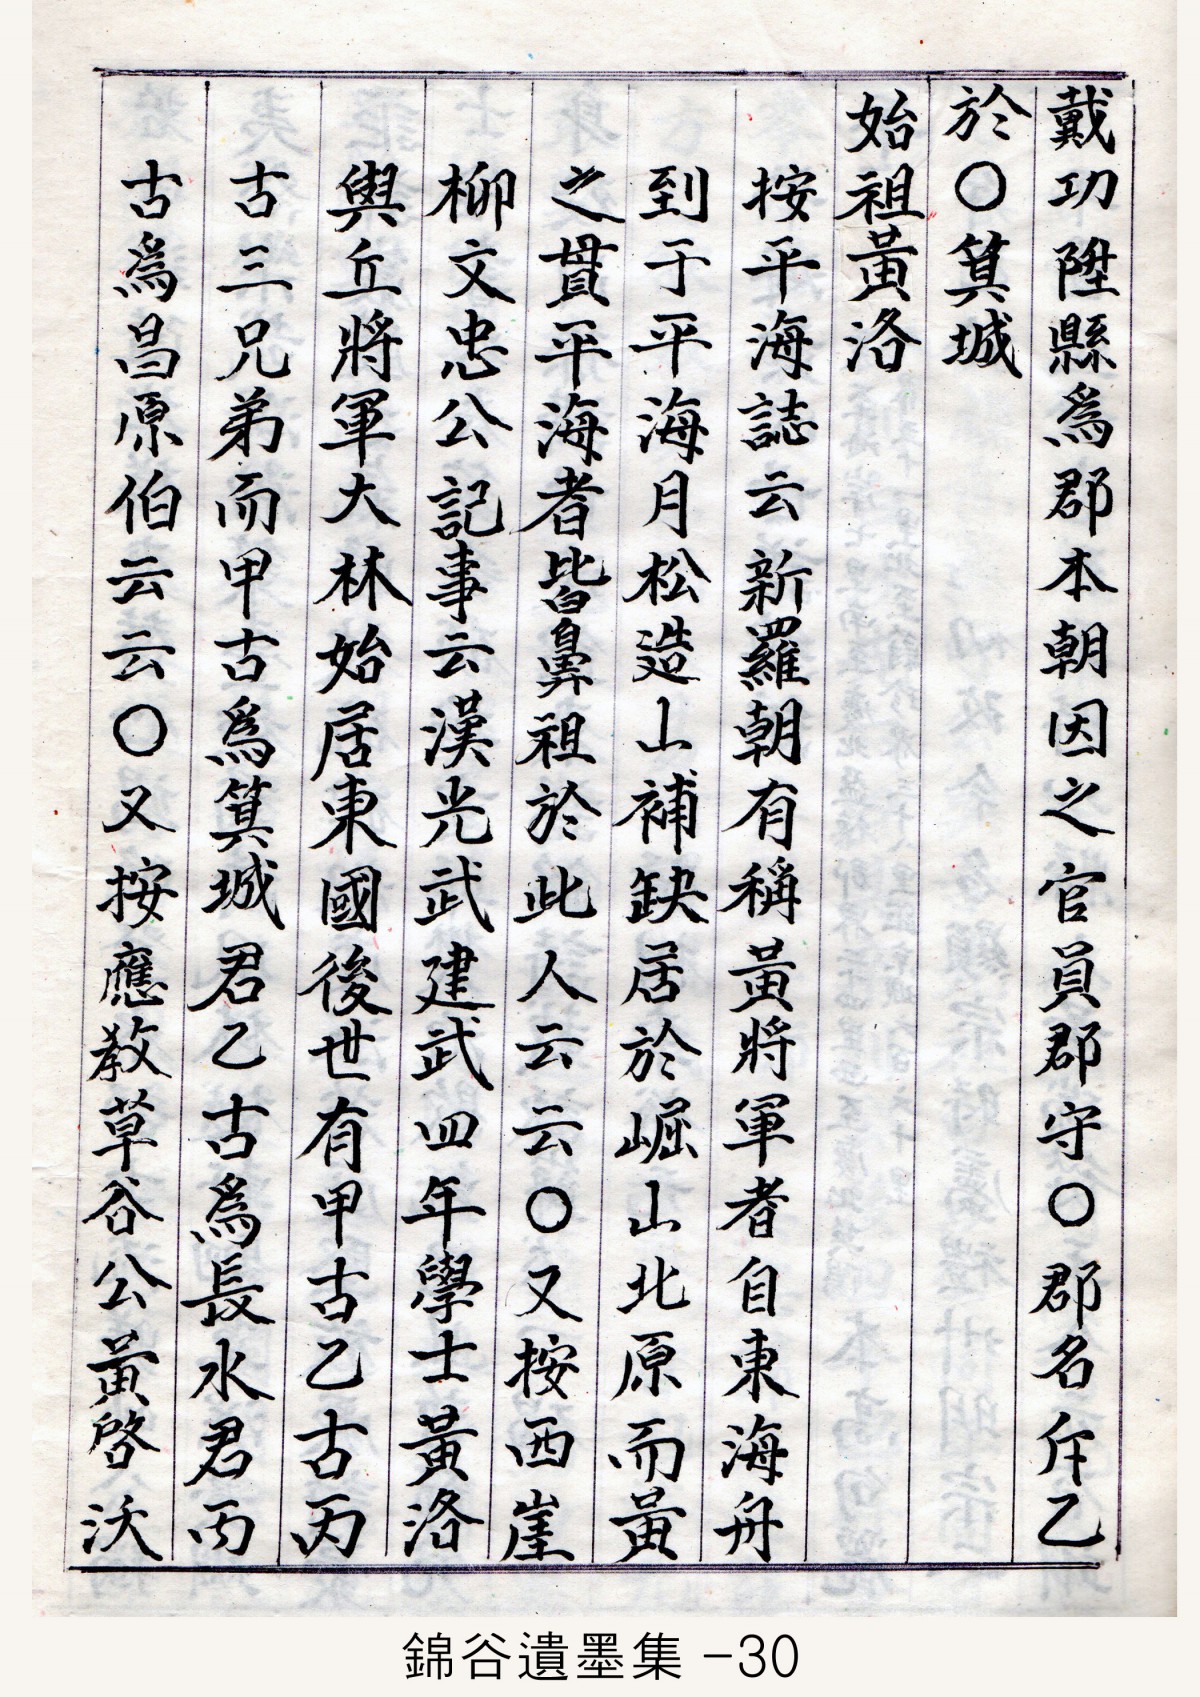 戴功陞縣爲郡本朝因之官員郡守〇郡名斤乙
於〇箕城
始祖黃洛
按平海誌云新羅朝有稱黃將軍者自東海舟
到于平海月松造山補缺居於崛山北原而黃
之貫平海者皆鼻祖於此人云云〇又按西崖
柳文忠公記事云漢光武建武四年學士黃洛
與丘將軍大林始居東國後世有甲古乙古丙
古三兄弟而甲古爲箕城君乙古爲長水君丙
古爲昌原伯云云〇又按應敎草谷公黃啓沃
錦谷遺墨集 -30